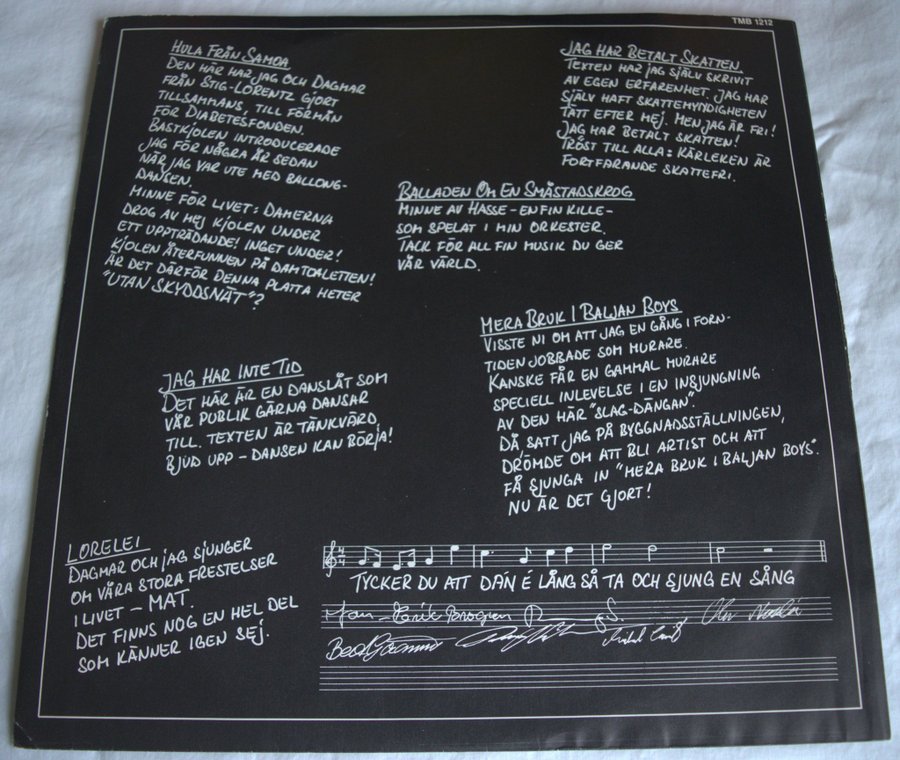 TMB 1212
HULA FRÅN SAMOA
DEN HÄR HAR JAG OCH DAGMAR
FRÅN STIG-LORENTZ GJORT
TILLSAMMANS, TILL FÖRMÅN
FÖR DIABETESFONDEN.
BASTKJOLEN INTRODUCERADE
JAG FÖR NÅGRA ÅR SEDAN
NÄR JAG VAR UTE MED BALLONG-
DANSEN.
MINNE FÖR LIVET: DAMERNA
DROG AV MEJ KJOLEN UNDER
ETT UPPTRÄDANDE! INGET UNDER!
KJOLEN ÅTERFUNNEN PÅ DAMTOALETTEN!
ÄR DET DÄRFÖR DENNA PLATTA HETER
"UTAN SKYDDSNÄT"?
JAG HAR BETALT SKATTEN
TEXTEN HAR JAG SJÄLV SKRIVIT
AV EGEN ERFARENHET. JAG HAR
SJÄLV HAFT SKATTEMYNDIGHETEN
TÄTT EFTER MEJ. MEN JAG ÄR FRI!
JAG HAR BETALT SKATTEN!
TRÖST TILL ALLA: KÄRLEKEN ÄR
FORTFARANDE SKATTEFRI.
BALLADEN OM EN SMÅSTADSKROG
MINNE AV HASSE - EN FIN KILLE -
SOM SPELAT I MIN ORKESTER.
TACK FÖR ALL FIN MUSIK DU GER
VÅR VÄRLD.
JAG HAR INTE TID
DET HÄR ÄR EN DANSLÅT SOM
VÅR PUBLIK GÄRNA DANSAR
TILL. TEXTEN ÄR TÄNKVÄRD,
BJUD UPP - DANSEN KAN BÖRJA!
MERA BRUK I BALJAN BOYS
VISSTE NI OM ATT JAG EN GÅNG I FORN-
TIDEN JOBBADE SOM MURARE.
KANSKE FÅR EN GAMMAL MURARE
SPECIELL INLEVELSE I EN INSJUNGNING
AV DEN HÄR "SLAG-DÄNGAN".
DÅ SATT JAG PÅ BYGGNADSSTÄLLNINGEN,
DRÖMDE OM ATT BLI ARTIST OCH ATT
FÅ SJUNGA IN "MERA BRUK I BALJAN BOYS".
NU ÄR DET GJORT!
LORELEI
DAGMAR OCH JAG SJUNGER
OM VÅRA STORA FRESTELSER
I LIVET - MAT.
DET FINNS NOG EN HEL DEL
SOM KÄNNER IGEN SEJ.
4/4
TYCKER DU ATT DAN É LÅNG SÅ TA OCH SJUNG EN SÅNG
Jan-Erik